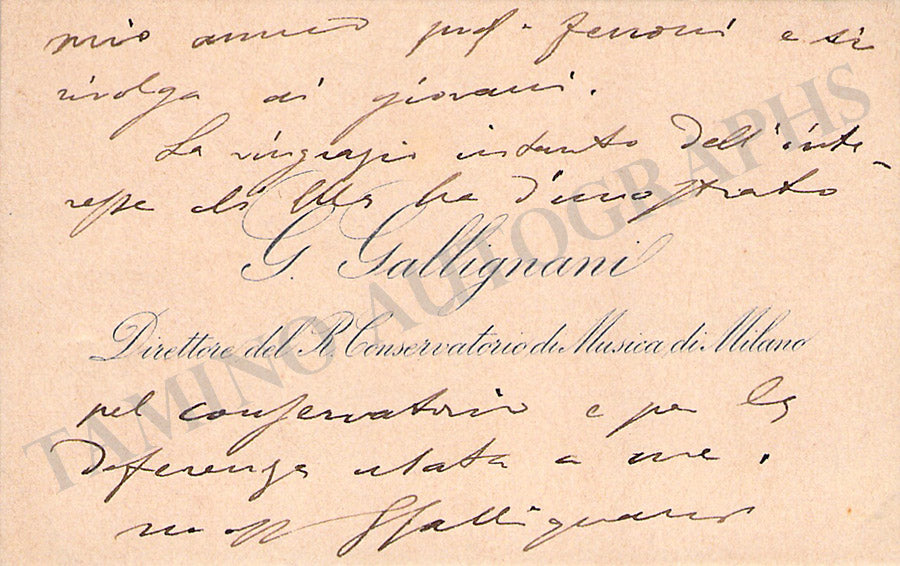 mio amico prof. Ferroni e si
rivolga ai giovani.
La ringrazio intanto dell'inte-
resse ch'Ella ha dimostrato
G. Gallignani
Direttore del R. Conservatorio di Musica di Milano
pel conservatorio e per la
deferenza usata a me.
GGallignani
TAMINO AUTOGRAPHS